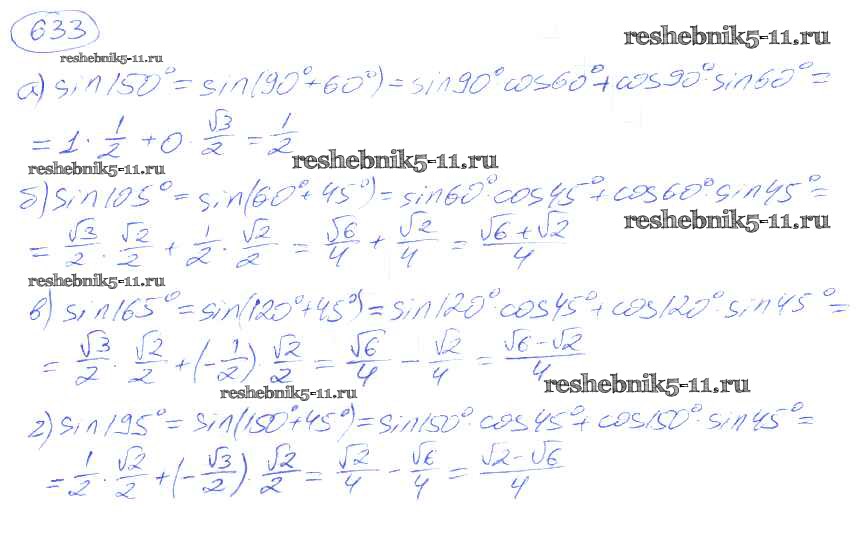 633
reshebnik5-11.ru
reshebnik5-11.ru
а) sin150° = sin(90° + 60°) = sin90° cos60° + cos90° · sin60° =
= 1 · 1/2 + 0 · √3/2 = 1/2
reshebnik5-11.ru
reshebnik5-11.ru
б) sin105° = sin(60° + 45°) = sin60° · cos45° + cos60° · sin45° =
reshebnik5-11.ru
= √3/2 · √2/2 + 1/2 · √2/2 = √6/4 + √2/4 = (√6 + √2)/4
reshebnik5-11.ru
в) sin165° = sin(120° + 45°) = sin120° · cos45° + cos120° · sin45° =
= √3/2 · √2/2 + (-1/2) · √2/2 = √6/4 - √2/4 = (√6 - √2)/4
reshebnik5-11.ru
reshebnik5-11.ru
г) sin195° = sin(150° + 45°) = sin150° · cos45° + cos150° · sin45° =
= 1/2 · √2/2 + (-√3/2) · √2/2 = √2/4 - √6/4 = (√2 - √6)/4